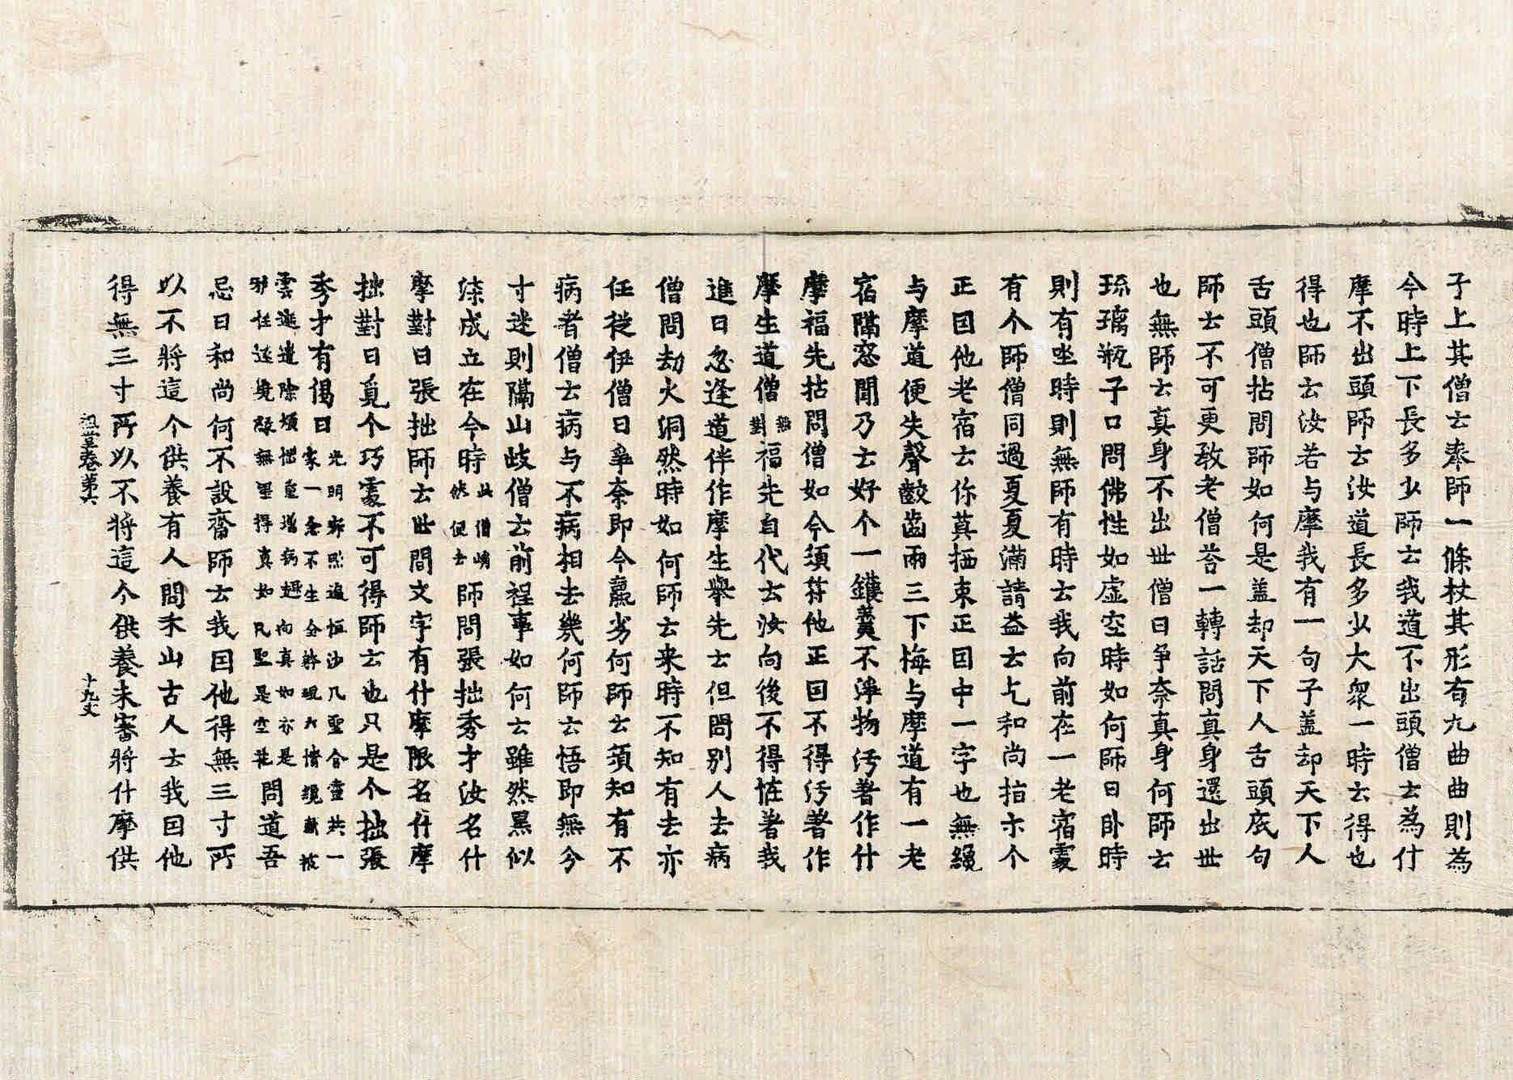 子上其僧云奉師一條杖其形有九曲曲則為
今時上下長多少師云我道不出頭僧云為什
摩不出頭師云汝道長多少大衆一時云得也
得也師云汝若与摩我有一句子盖却天下人
舌頭僧拈問師如何是盖却天下人舌頭底句
師云不可更教老僧荅一轉話問真身還出世
也無師云真身不出世僧曰争奈真身何師云
琉璃瓶子口問佛性如虚空時如何師曰卧時
則有坐時則無師有時云我向前在一老宿處
有个師僧同過夏夏滿請益云乞和尚指示个
正因他老宿云你莫栖束正因中一字也無纔
与摩道便失聲齩齒兩三下悔与摩道有一老
宿隔窓聞乃云好个一鑊羹不淨物汚著作什
摩福先拈問僧如今須荐他正因不得汚著作
摩生道僧無對福先自代云汝向後不得恠著我
進曰忽逢道伴作摩生舉先云但問別人去病
僧問劫火洞然時如何師云来時不知有去亦
任從伊僧曰爭奈即今羸劣何師云須知有不
病者僧云病与不病相去幾何師云悟即無分
寸迷則隔山歧僧云前程事如何云雖然黑似
漆成立在今時此僧嘵然便去師問張拙秀才汝名什
摩對曰張拙師云世間文字有什摩限名什摩
拙對曰覓个巧處不可得師云也只是个拙張
秀才有偈曰光明寂照遍恒沙凡聖合靈共一家一念不生全體現六情纔動被
雲遮遣除煩惱重增病趣向真如亦是邪任運境緣無罣碍真如凡聖是空花問道吾
忌日和尚何不設齋師云我因他得無三寸所
以不將這个供養有人問末山古人云我因他
得無三寸所以不將這个供養未審將什摩供
祖堂卷第六 十九丈